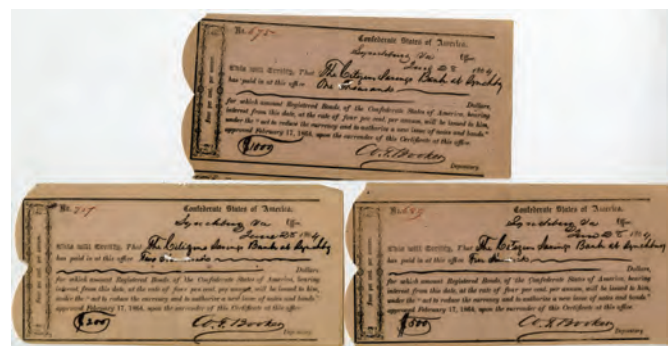 No. 675
Confederate States of America.
Lynchburg Va
June 28 1864
This will Certify, That The Citizens Savings Bank at Lynchbg
has paid in at this office One Thousands
Dollars,
for which amount Registered Bonds of the Confederate States of America, bearing
interest from this date, at the rate of four per cent. per annum, will be issued to him,
under the "act to reduce the currency and to authorise a new issue of notes and bonds"
approved February 17, 1864, upon the surrender of this Certificate at this office.
$1000
Depositary.
Four per cent. per annum.
No. 717
Confederate States of America.
Lynchburg Va
June 28 1864
This will Certify, That The Citizens Savings Bank at Lynchbg
has paid in at this office
Dollars,
for which amount Registered Bonds of the Confederate States of America, bearing
interest from this date, at the rate of four per cent. per annum, will be issued to him,
under the "act to reduce the currency and to authorise a new issue of notes and bonds"
approved February 17, 1864, upon the surrender of this Certificate at this office.
W. F. Booker
Depositary.
Four per cent. per annum.
No. 689
Confederate States of America.
Lynchburg Va
June 28 1864
This will Certify, That The Citizens Savings Bank at Lynchbg
has paid in at this office
Dollars,
for which amount Registered Bonds of the Confederate States of America, bearing
interest from this date, at the rate of four per cent. per annum, will be issued to him,
under the "act to reduce the currency and to authorise a new issue of notes and bonds"
approved February 17, 1864, upon the surrender of this Certificate at this office.
$500
Depositary.
Four per cent. per annum.